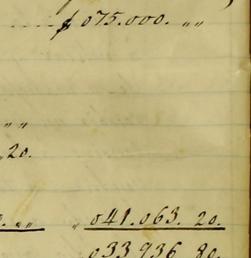 $ 075.000. „ „
„ „
„20.
0. „ „ „ 041.063. 20.
033 936 80.